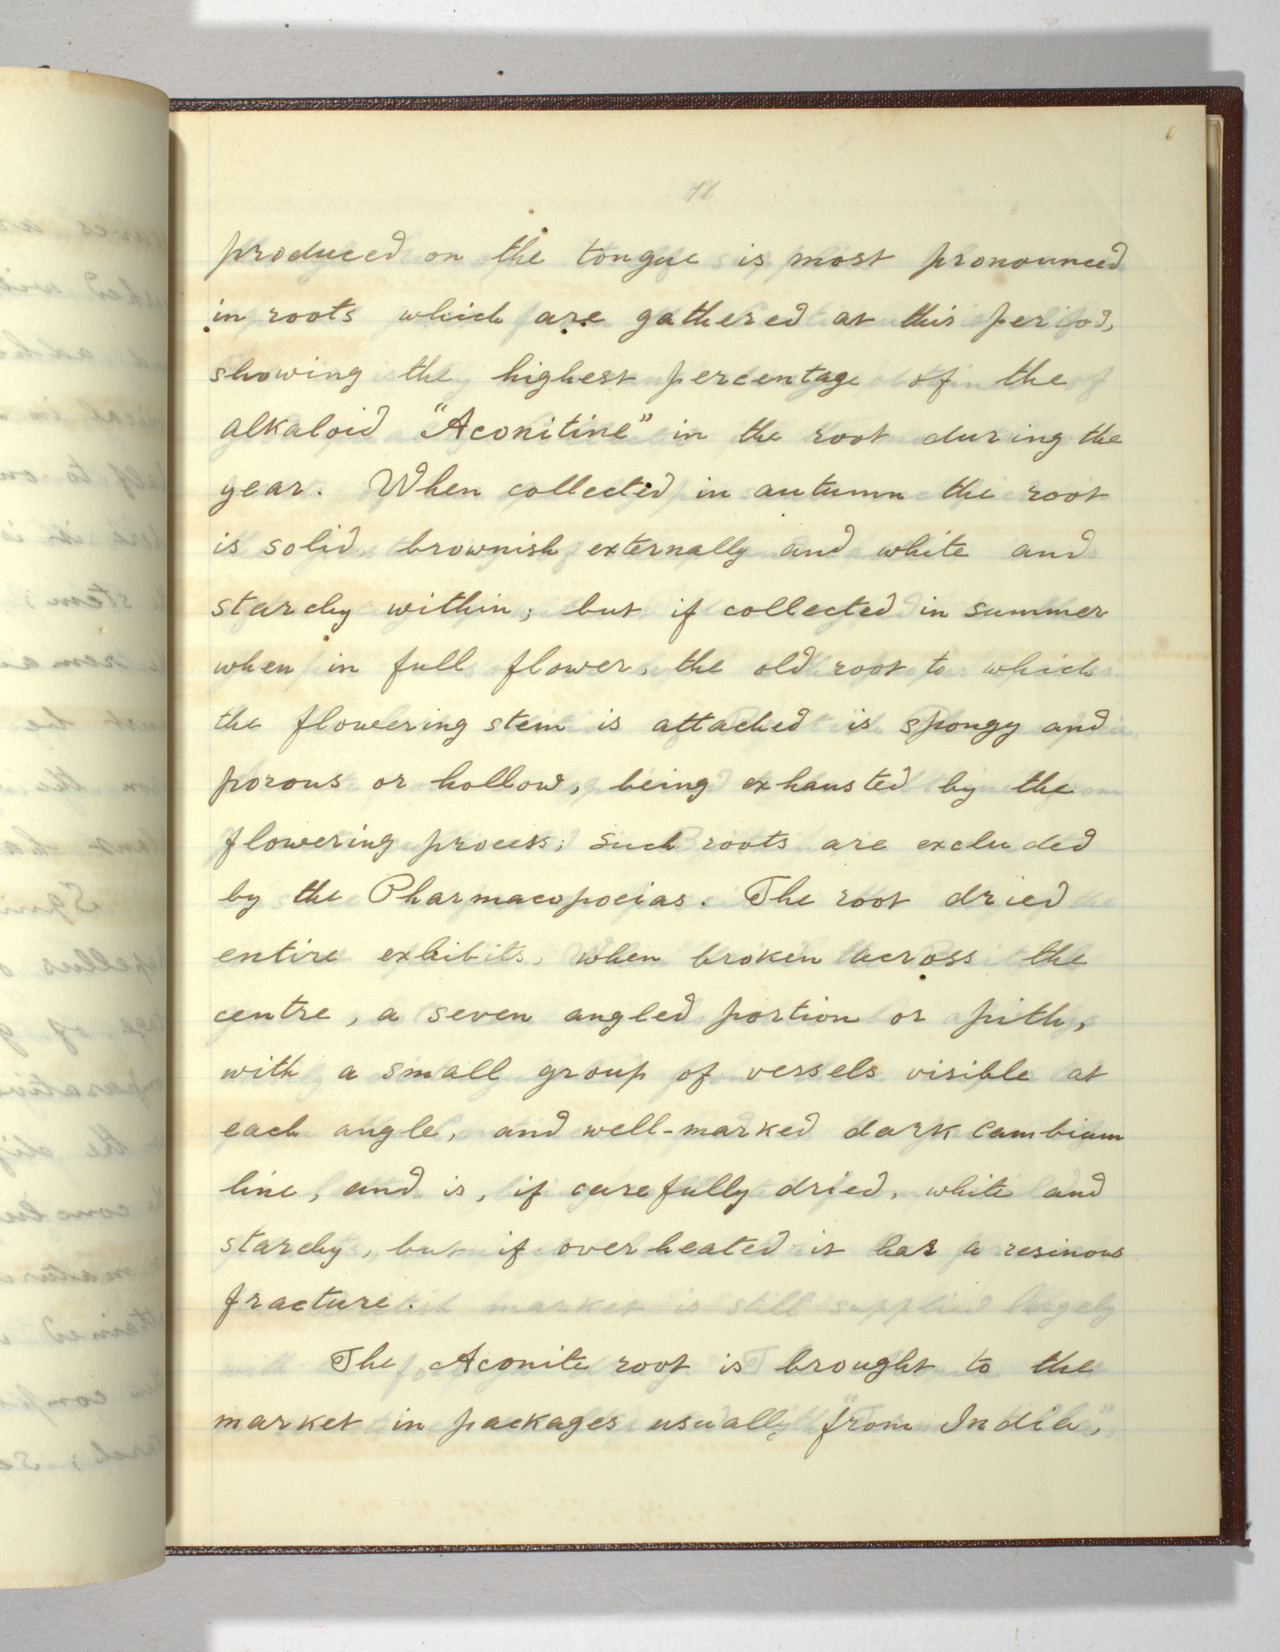 produced on the tongue is most pronounced
in roots which are gathered at this period,
showing the highest percentage of the
alkaloid "Aconitine" in the root during the
year. When collected in autumn the root
is solid, brownish externally and white and
starchy within; but if collected in summer
when in full flower, the old root to which
the flowering stem is attached is spongy and
porous or hollow, being exhausted by the
flowering process; such roots are excluded
by the Pharmacopoeias. The root dried
entire exhibits, when broken across the
centre, a seven angled portion or pith,
with a small group of vessels visible at
each angle, and well-marked dark cambium
line, and is, if carefully dried, white and
starchy, but if overheated it has a resinous
fracture.
The Aconite root is brought to the
market in packages usually "from India,"